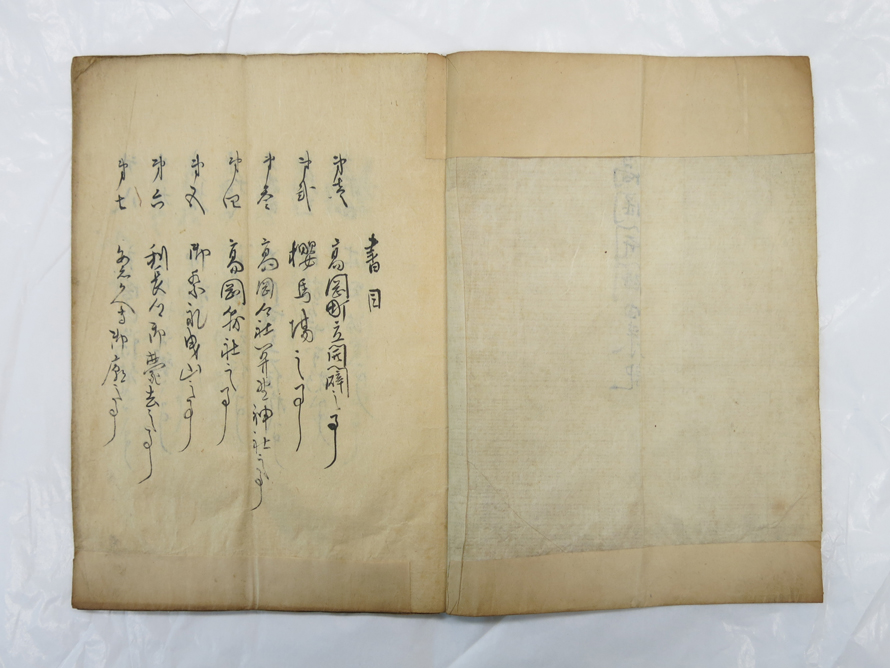 書目
第壱 高岡町立開闢之事
第弐 櫻馬場之事
第参 高岡今社并 神社之事
第四 高岡 社之事
第五 御祭礼曳山之事
第六 利長公御薨去之事
第七 御廟之事